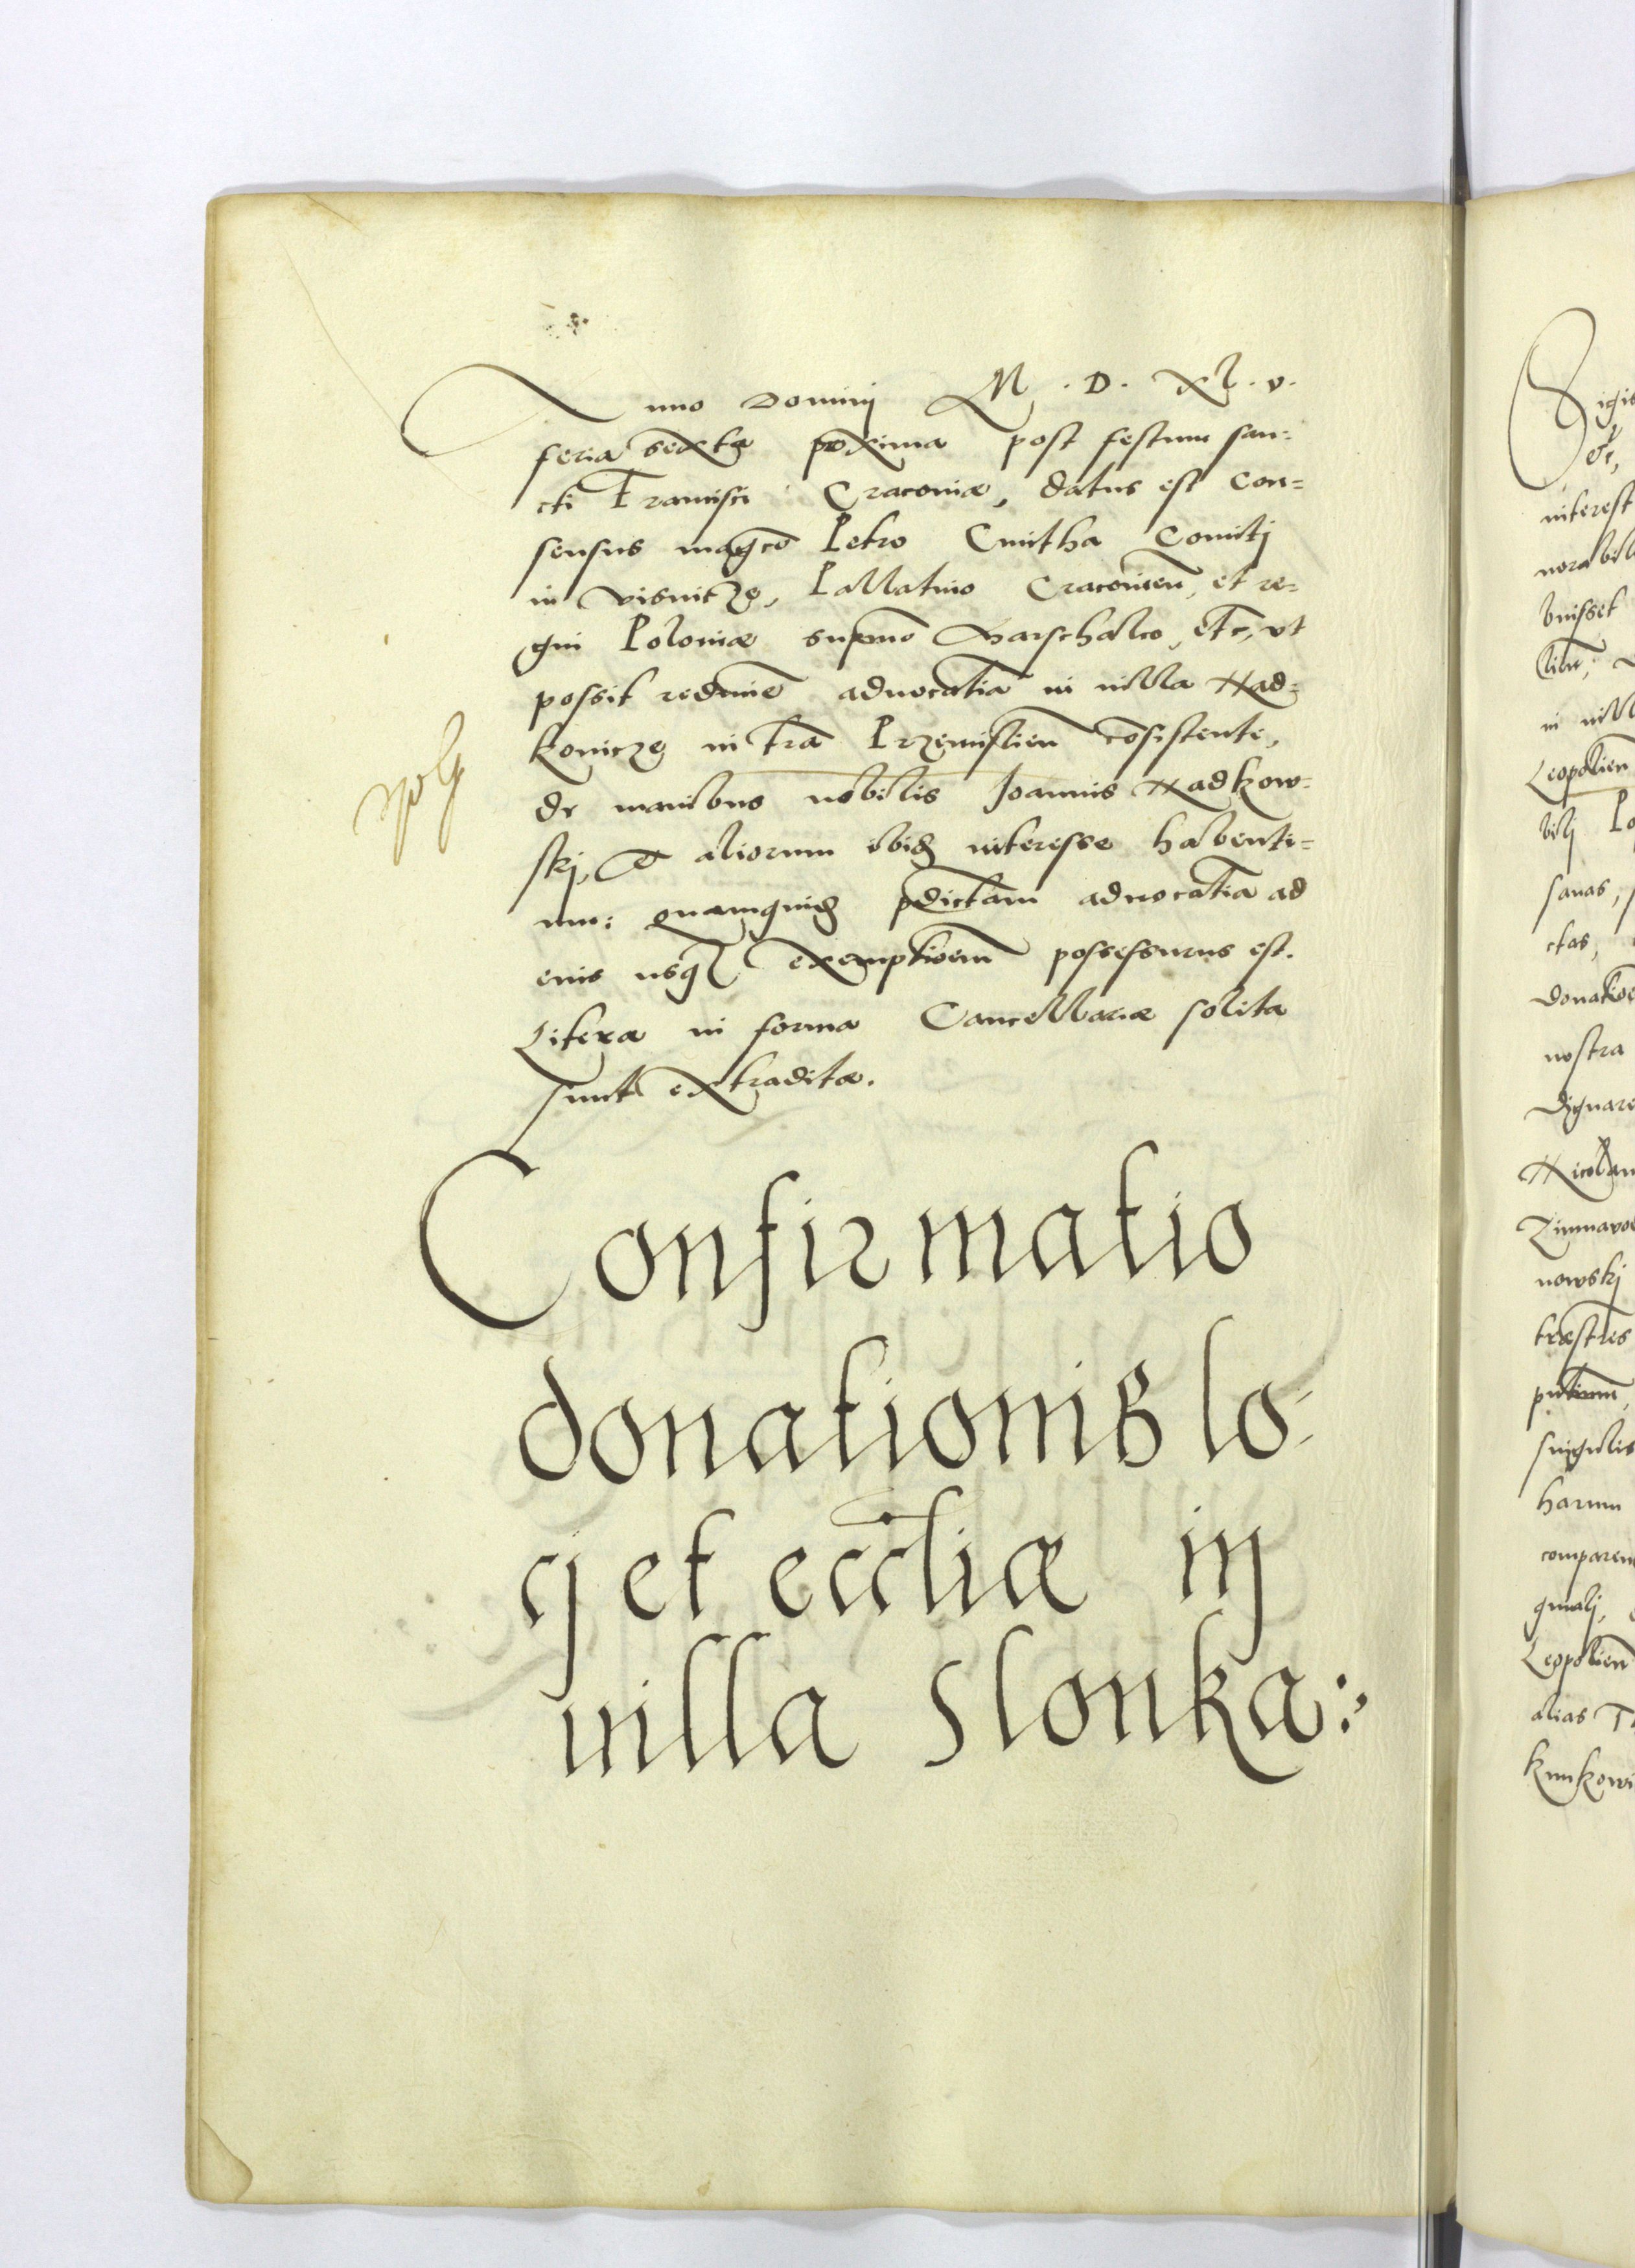 Anno Dominj M . D . XL . v .
feria sexta proxima post festum san=
cti Francisci Cracoviæ, datus est con=
sensus mag͞co Petro Cmitha Comitj
in visnicze, Pallatino Cracovien̄, et re=
gni Poloniæ sup̄mo Marschalco, etc, vt
possit redimē advocatiā in villa Rad=
konicze in tr̄a Przemislien̄ cōsistente,
de manibus nobilis Joannis Radkow=
skj, et aliorum ibid interesse habenti=
um: quamquid p̄dictam advocatiā ad
eius usq exemptioem̄ possessurus est.
Literæ in forma Cancellariæ solita
sunt extraditæ.
Confirmatio
donationis lo=
cj et eccl̄iæ in
villa Slonka:,
Sigis
etc,
interest
norabil
buisset
lien̄,
in vill
Leopolien̄
bilj
sanas,
ctas,
donatioe
nostra
dignare
Nicolaum
Zimnavod
nowskj
singulis
harum
comparen
Leopolien̄
alias
kunkowi